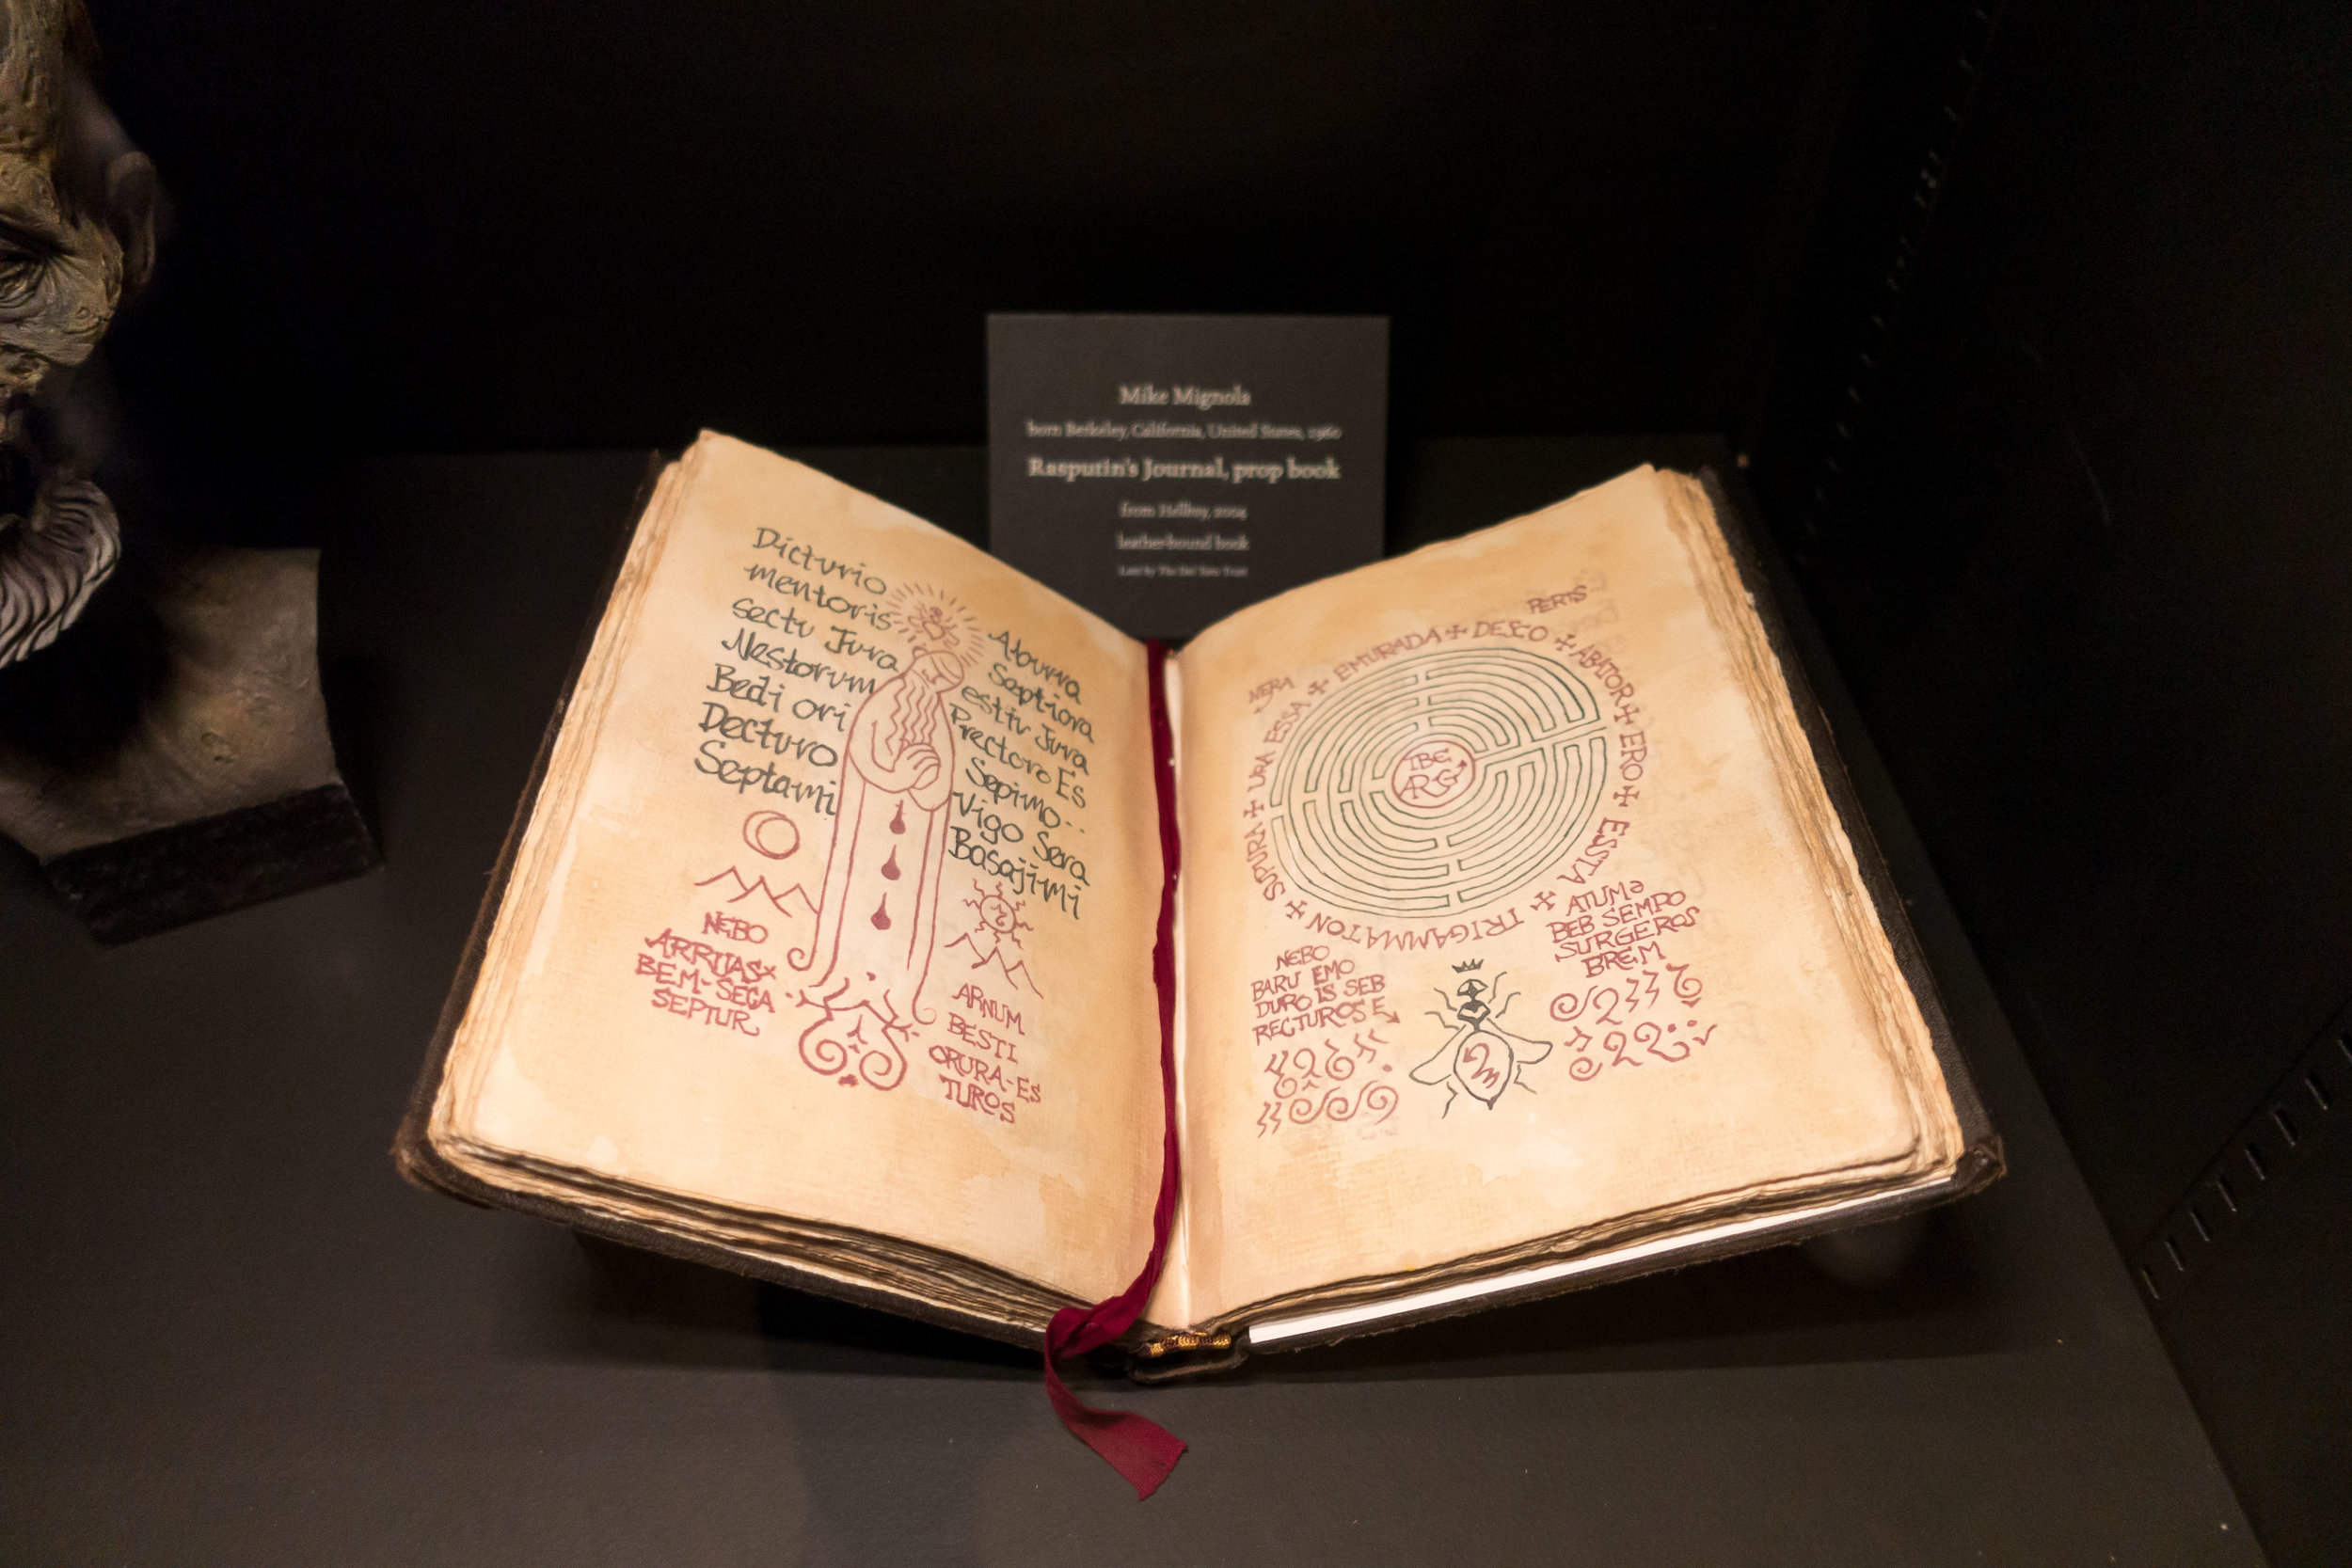 Mike Mignola
born Berkeley, California, United States, 1960
Rasputin's Journal, prop book
from Hellboy, 2004
leather-bound book
Lent by The Del Toro Trust
Dicturio
mentoris
sectu Jura
Nestorum
Bedi ori
Decturo
Septami
Aburra
Septiora
estiu Jura
Prectoro Es
Sepimo..
Vigo Sera
Basajimi
NEBO
ARRUAS
BEM-SEGA
SEPTUR
ARNUM
BESTI
ORURA-ES
TUROS
PERTS
NERA
EMTURADA + DESCO + ABATOR + ERO + ESSTA + TRIGAMMATON + SUPURA + URA ESSA +
IBE
ARG
NEBO
BARU EMO
DURO IS SEB
RECTUROS E
ATUMA
BEB SEMPO
SURGEROS
BREM